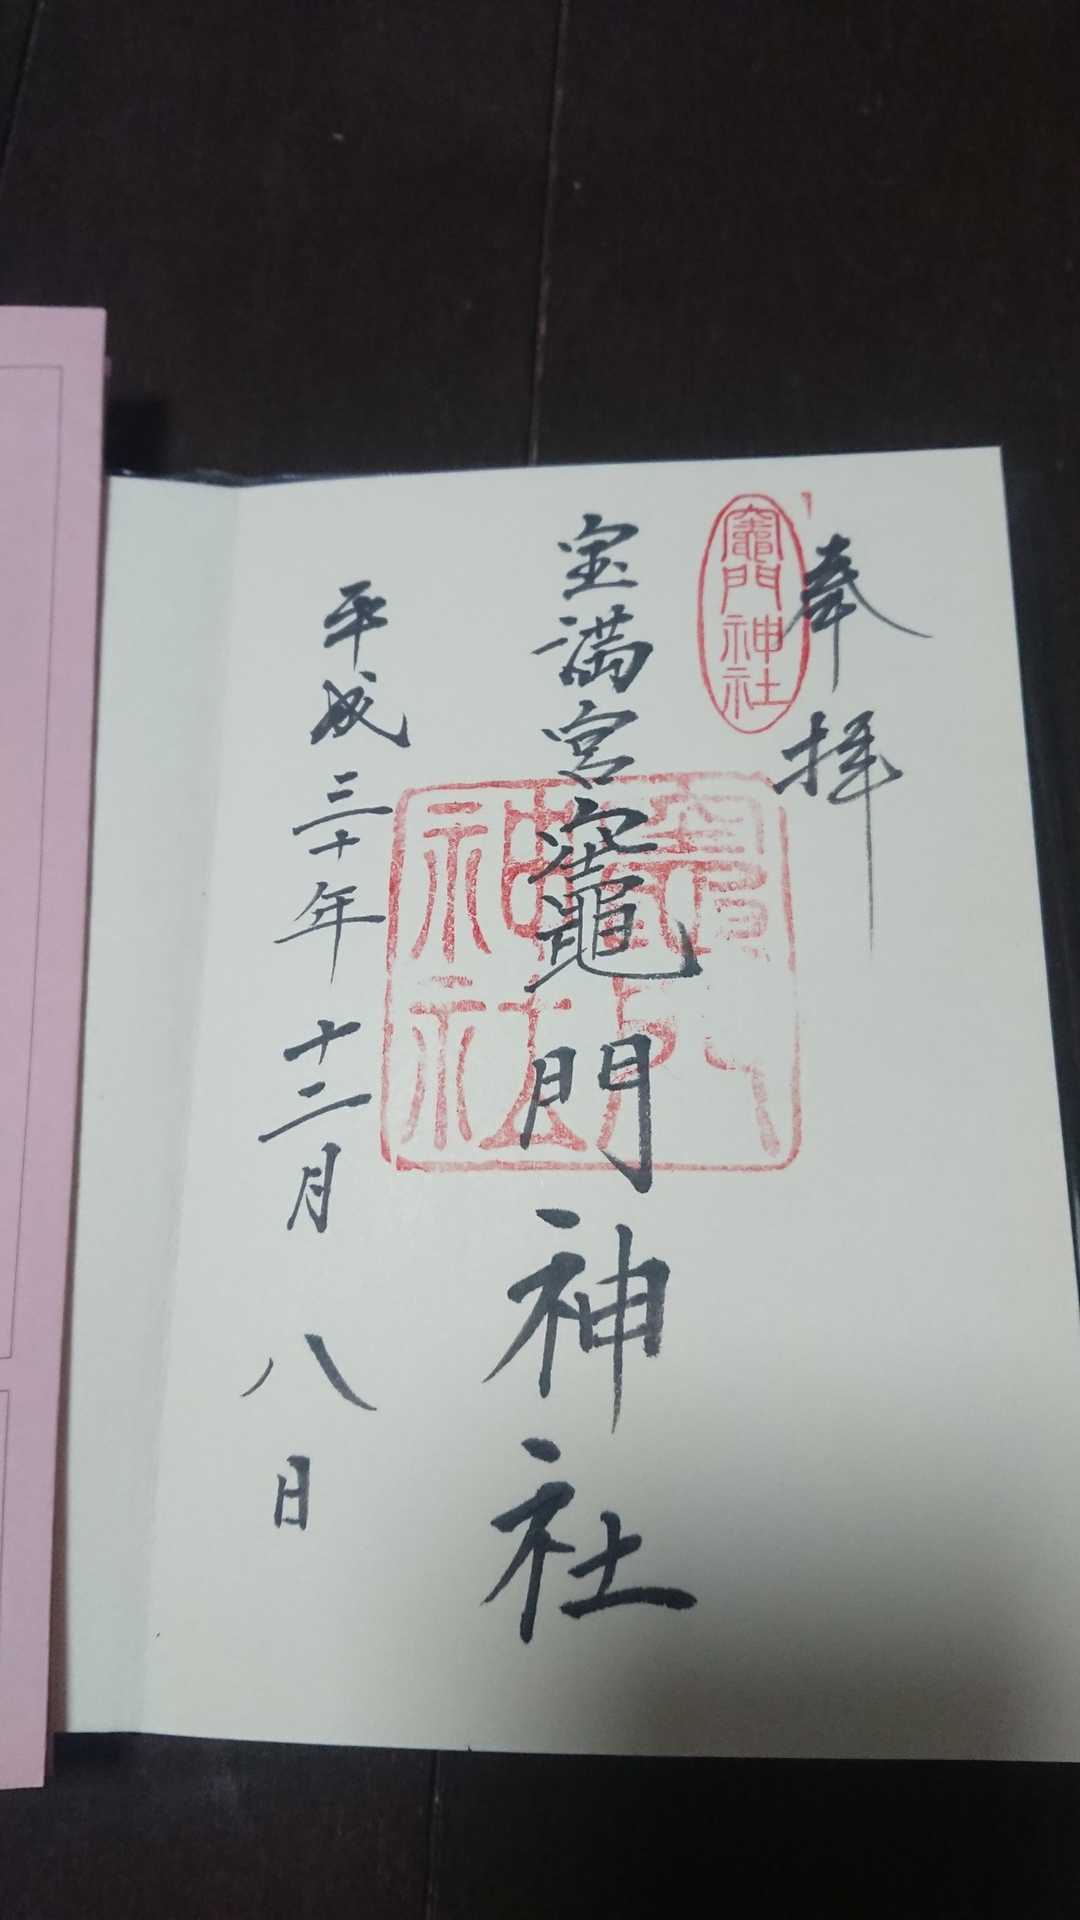 奉拝
竈門神社
宝満宮竈門神社
竈門神社
平成三十年十二月八日